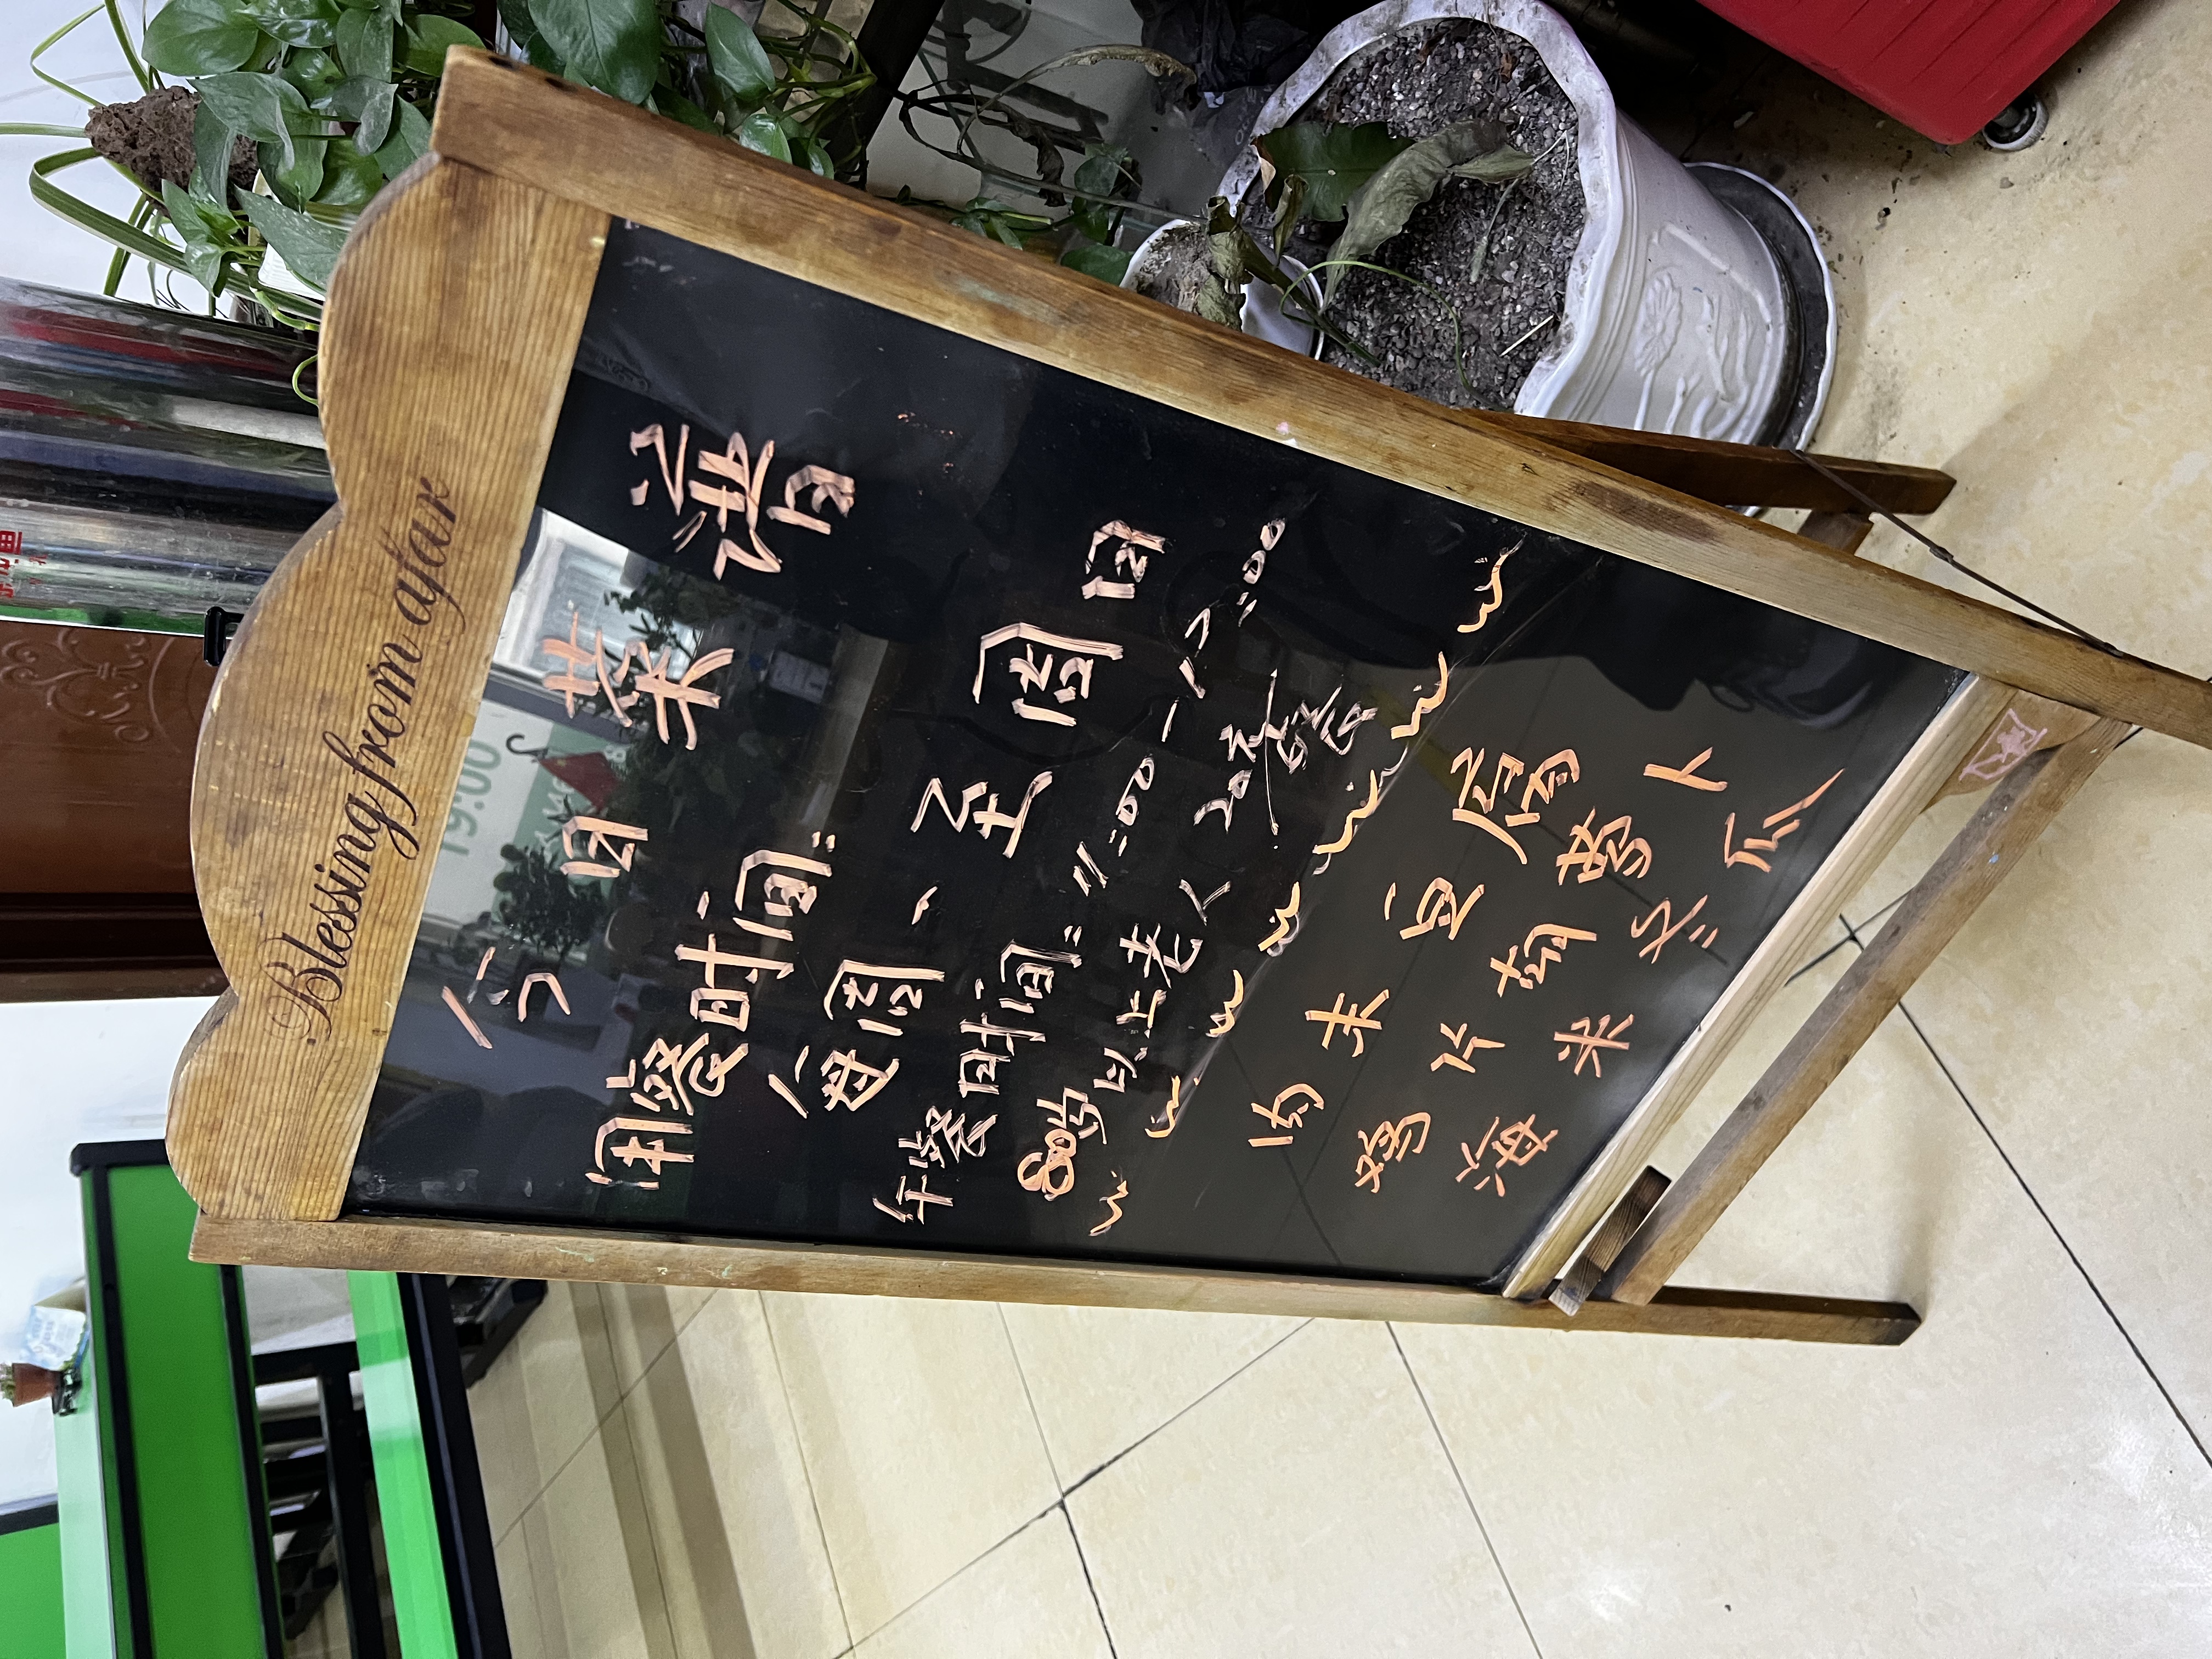 Blessing from afar
今日菜谱
用餐时间:
每周一至周
午餐时间:11:00-12:00
80岁以上老人20
肉末豆腐
片萝卜
海米冬瓜
19:00